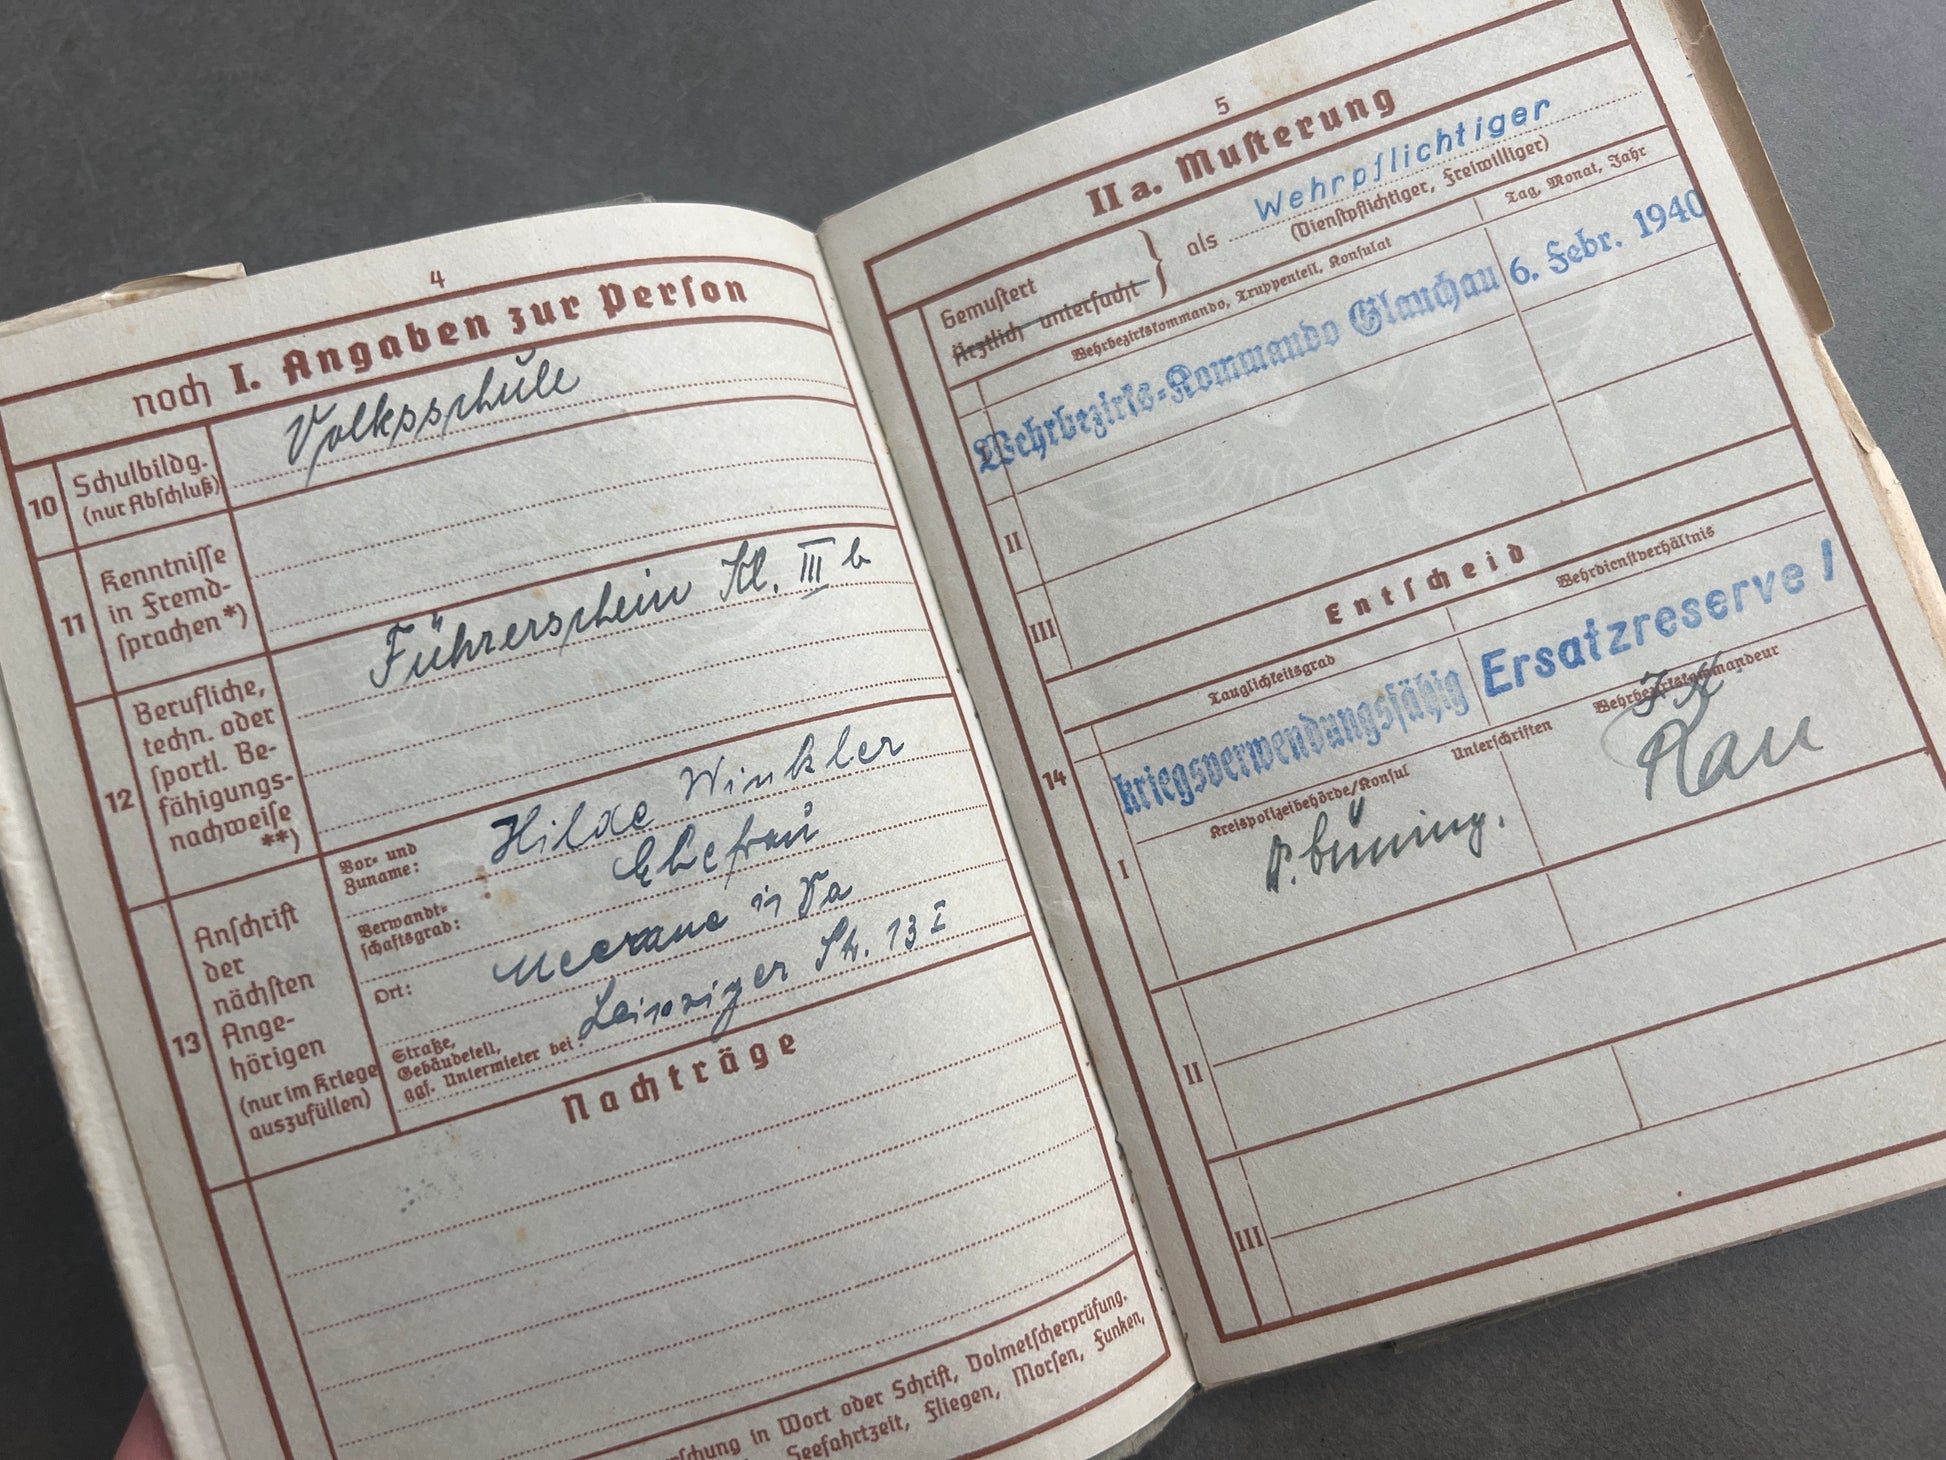 4
noch I. Angaben zur Person
10
Schulbildg.
(nur Abschluß)
Volksschule
11
Kenntnisse
in Fremd-
sprachen*)
12
Berufliche,
techn. oder
sportl. Be-
fähigungs-
nachweise
**)
Führerschein Kl. III b
13
Anschrift
der
nächsten
Ange-
hörigen
(nur im Kriege
auszufüllen)
Vor- und
Zuname:
Hilde Winkler
Verwandt-
schaftsgrad:
Ehefrau
Ort:
Meerane in Sa
Straße,
Gebäudeteil,
ggf. Untermieter bei:
Leipziger Str. 13 I
Nachträge
in Wort oder Schrift, Dolmetscherprüfung.
Seefahrtzeit, Fliegen, Morsen, Funken,
5
IIa. Musterung
Gemustert
Ärztlich untersucht
} als Wehrpflichtiger
(Dienstpflichtiger, Freiwilliger)
Wehrbezirkskommando, Truppenteil, Konsulat
Tag, Monat, Jahr
I
Wehrbezirks-Kommando Glauchau 6. Febr. 1940
II
III
Entscheid
Tauglichkeitsgrad
Wehrdienstverhältnis
14
kriegsverwendungsfähig Ersatzreserve I
Kreispolizeibehörde/Konsul
Unterschriften
Wehrbezirkskommandeur
I
II
III